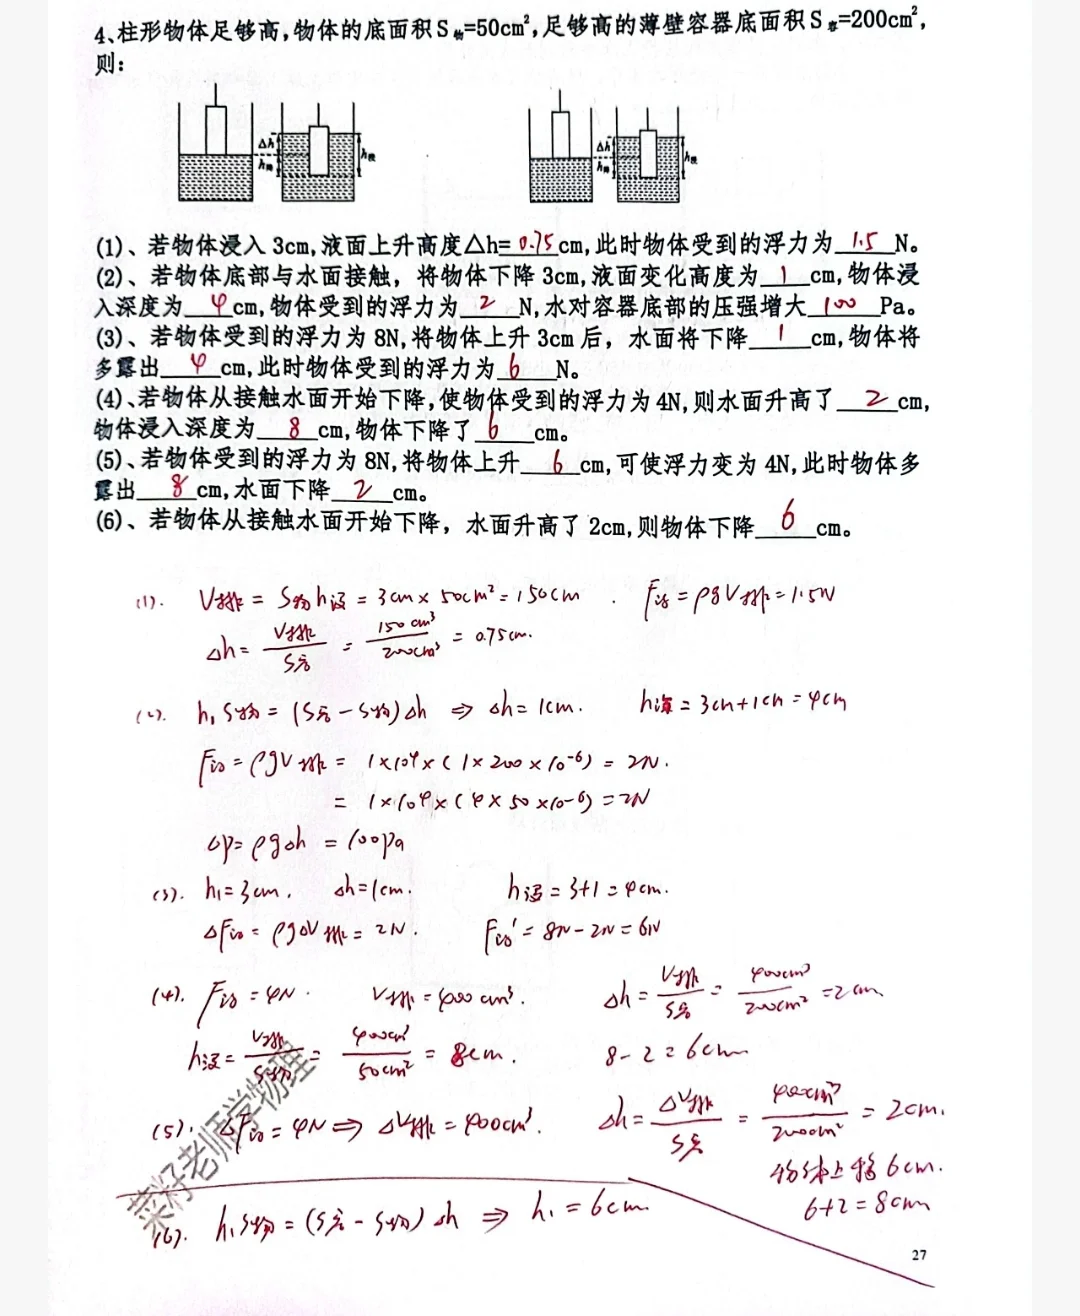 4、柱形物体足够高,物体的底面积S物=50cm²,足够高的薄壁容器底面积S容=200cm²,
则:
Δh
h降
h浸
Δh
h降
h浸
(1)、若物体浸入3cm,液面上升高度△h= 0.75 cm,此时物体受到的浮力为 1.5 N。
(2)、若物体底部与水面接触，将物体下降3cm,液面变化高度为 1 cm,物体浸
入深度为 4 cm,物体受到的浮力为 2 N,水对容器底部的压强增大 100 Pa。
(3)、若物体受到的浮力为8N,将物体上升3cm后，水面将下降 1 cm,物体将
多露出 4 cm,此时物体受到的浮力为 6 N。
(4)、若物体从接触水面开始下降,使物体受到的浮力为4N,则水面升高了 2 cm,
物体浸入深度为 8 cm,物体下降了 6 cm。
(5)、若物体受到的浮力为8N,将物体上升 6 cm,可使浮力变为4N,此时物体多
露出 8 cm,水面下降 2 cm。
(6)、若物体从接触水面开始下降，水面升高了2cm,则物体下降 6 cm。
(1). V排 = S物h浸 = 3cm×50cm²=150cm . F浮=ρgV排=1.5N
Δh= V排/S容 = 150cm³/200cm² = 0.75cm.
(2). h₁S物 = (S容-S物)Δh ⇒ Δh=1cm. h深=3cm+1cm=4cm
F浮=ρgV排= 1×10⁴×(1×200×10⁻⁶) = 2N.
= 1×10⁴×(4×50×10⁻⁶)=2N
ΔP=ρgΔh =100Pa
(3). h₁=3cm. Δh=1cm. h浸=3+1=4cm.
ΔF浮=ρgΔV排=2N. F浮'=8N-2N=6N
(4). F浮=4N. V排=400cm³. Δh= V排/S容 = 400cm³/200cm² =2cm
h浸= V排/S物 = 400cm³/50cm² = 8cm. 8-2=6cm
(5). ΔF浮=4N⇒ΔV排=400cm³. Δh= ΔV排/S容 = 400cm³/200cm² =2cm.
物体上移6cm.
6+2=8cm
(6). h₁S物=(S容-S物)Δh ⇒ h₁=6cm
菜籽老师学物理
27